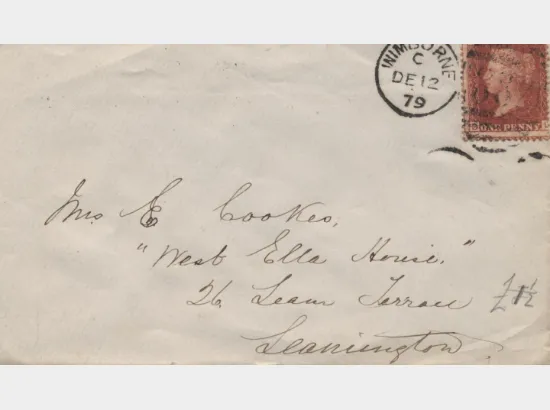 WIMBORNE
C
DE 12
79
ONE PENNY
Mrs E Cookes,
"West Ella House."
26 Leam Terrace £1½
Leamington